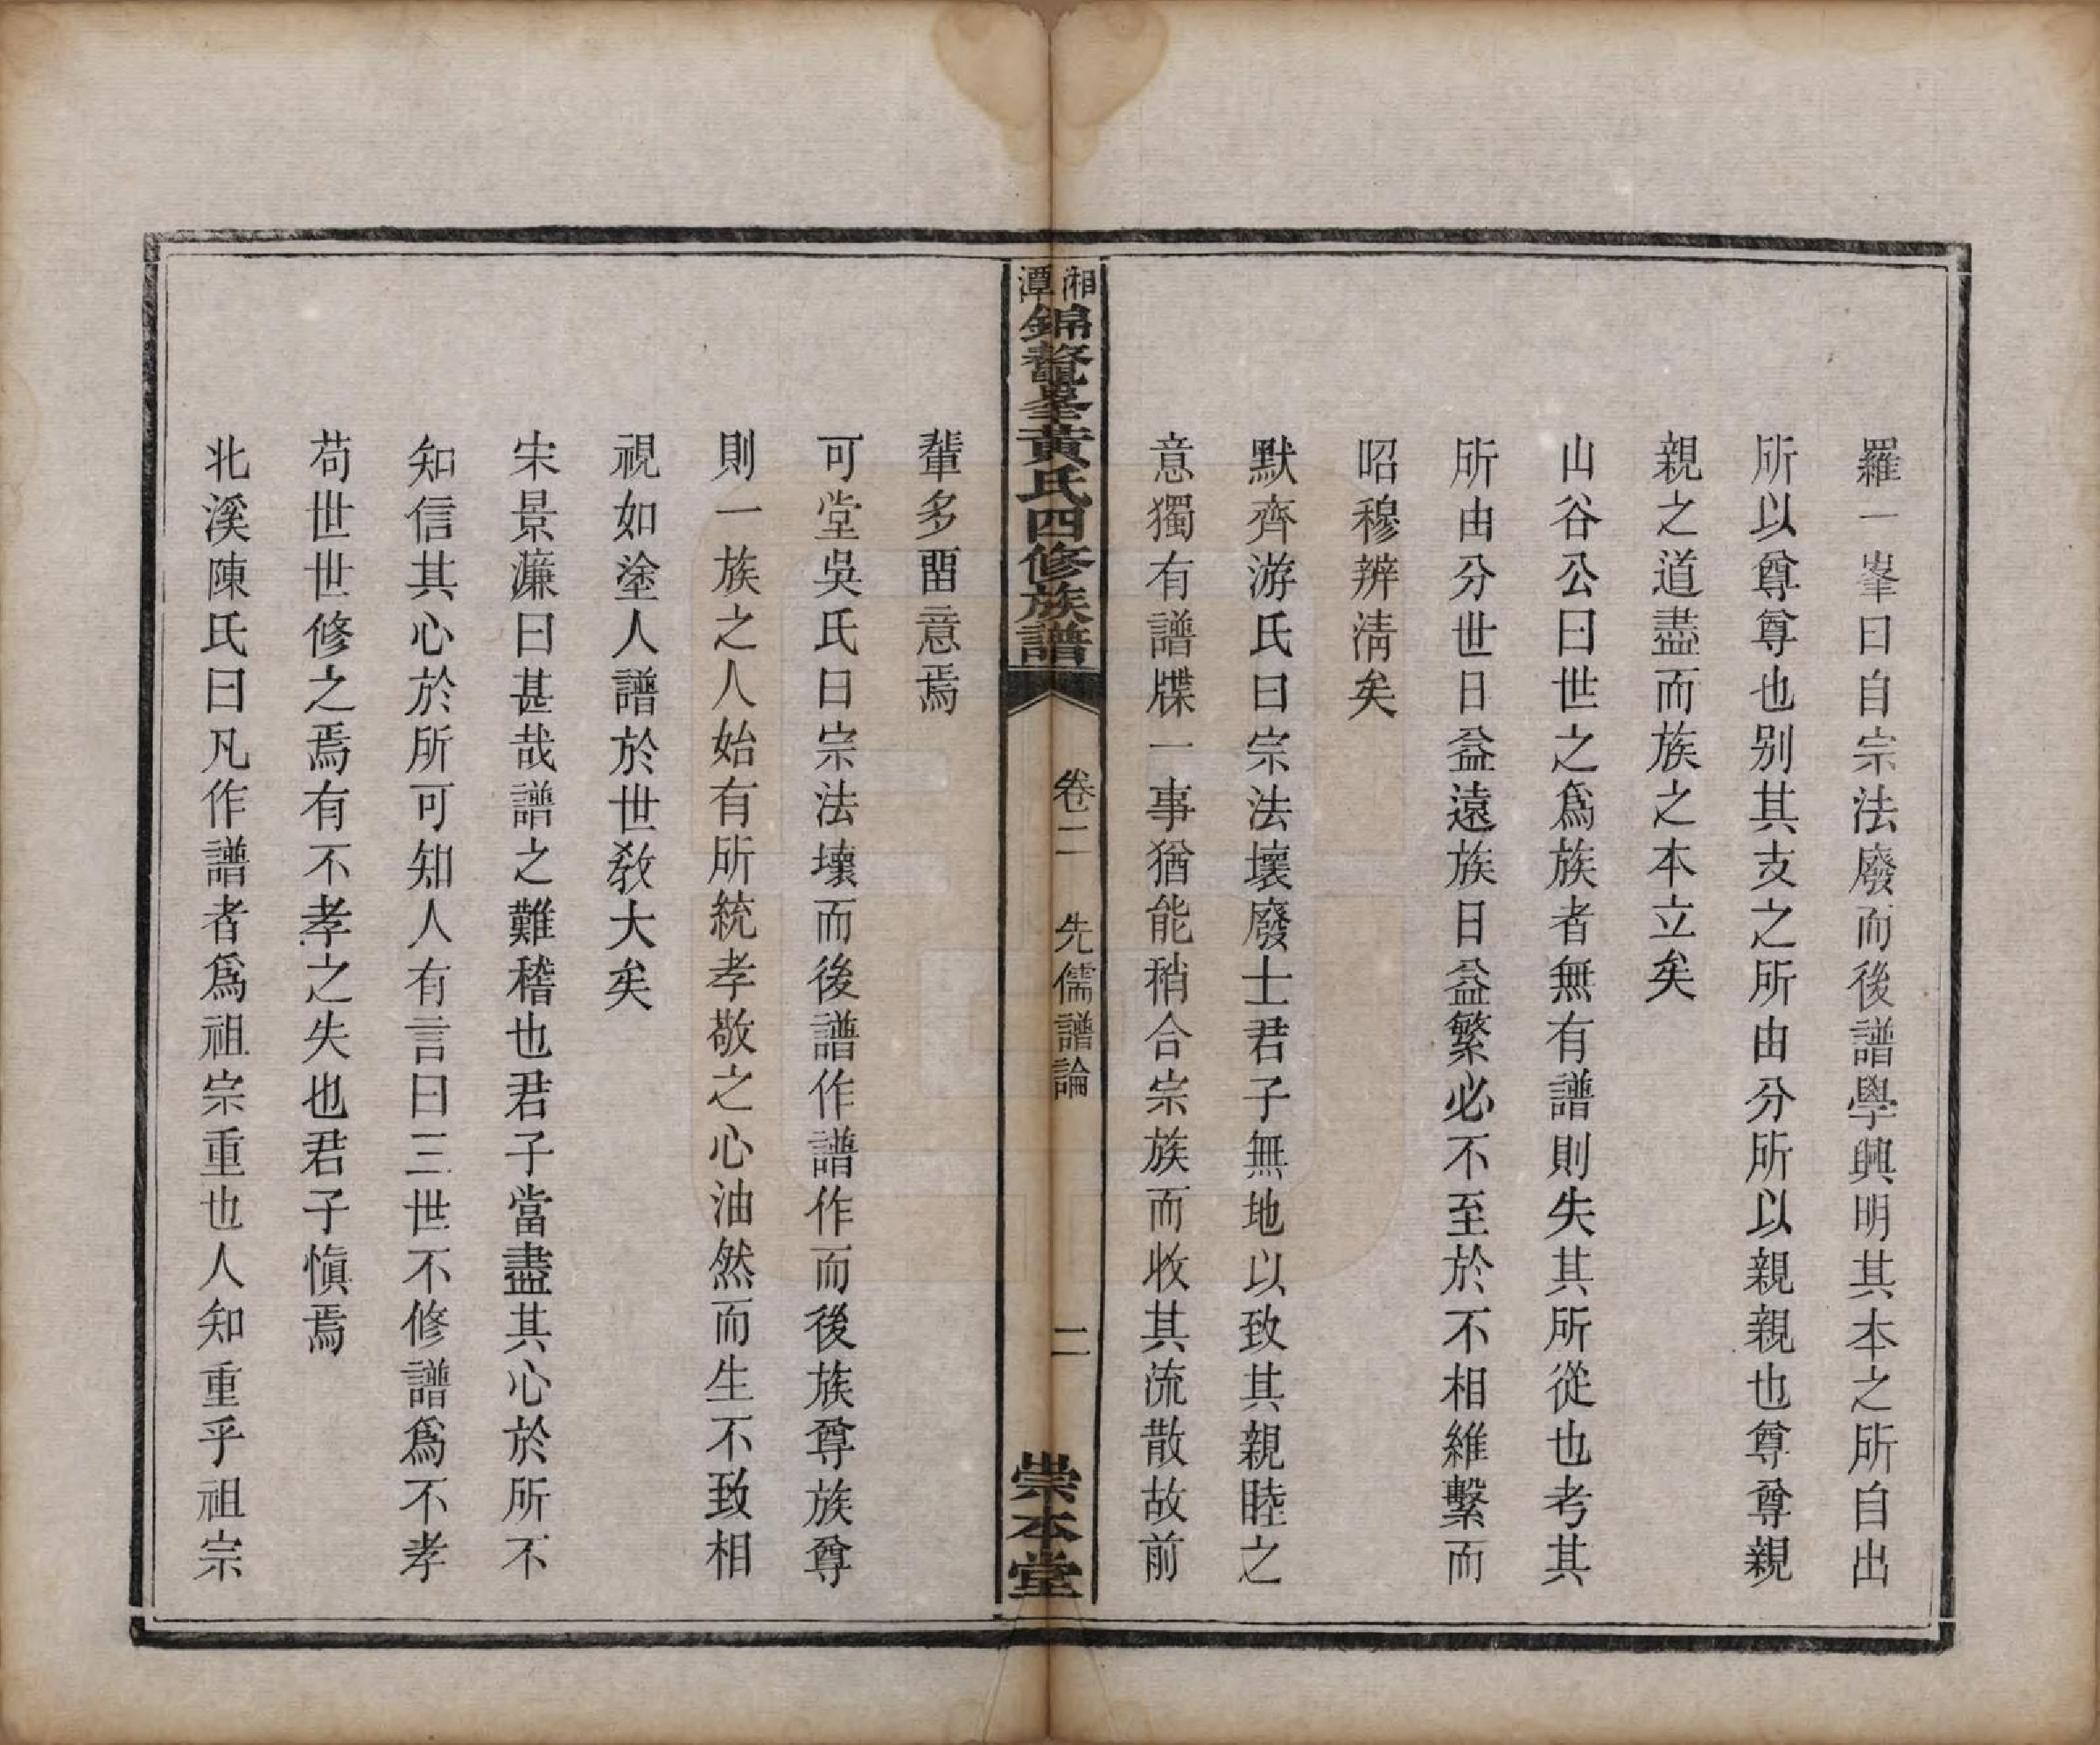 羅一峯曰自宗法廢而後譜學興明其本之所自出
所以尊尊也别其支之所由分所以親親也尊尊親
親之道盡而族之本立矣
山谷公曰世之爲族者無有譜則失其所從也考其
所由分世日益遠族日益繁必不至於不相維繫而
昭穆辨淸矣
默齊游氏曰宗法壞廢士君子無地以致其親睦之
意獨有譜牒一事猶能稍合宗族而收其流散故前
湘潭錦鰲星黃氏四修族譜
卷二 先儒譜論
二
崇本堂
輩多畱意焉
可堂吳氏曰宗法壞而後譜作譜作而後族尊族尊
則一族之人始有所統孝敬之心油然而生不致相
視如塗人譜於世敎大矣
宋景濂曰甚哉譜之難稽也君子當盡其心於所不
知信其心於所可知人有言曰三世不修譜爲不孝
苟世世修之焉有不孝之失也君子愼焉
北溪陳氏曰凡作譜者爲祖宗重也人知重乎祖宗